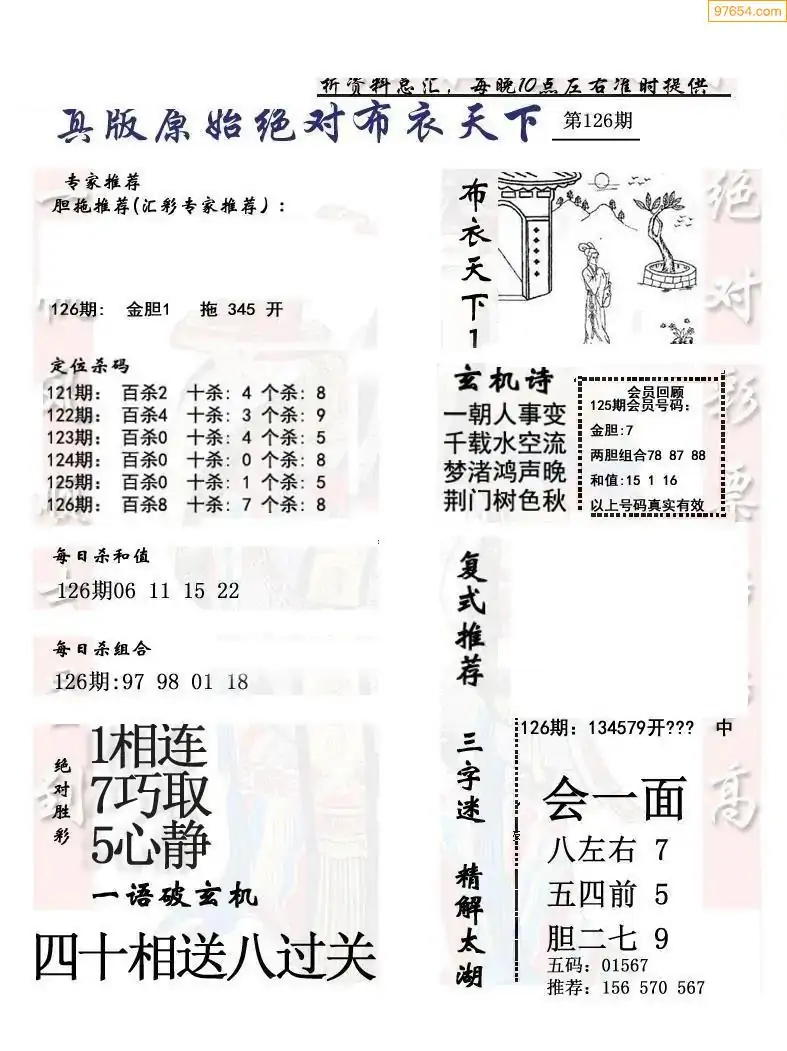 97654.com
析资料总汇，每晚10点左右准时提供
真版原始绝对布衣天下 第126期
专家推荐
胆拖推荐(汇彩专家推荐)：
126期： 金胆1 拖 345 开
定位杀码
121期： 百杀2 十杀：4 个杀：8
122期： 百杀4 十杀：3 个杀：9
123期： 百杀0 十杀：4 个杀：5
124期： 百杀0 十杀：0 个杀：8
125期： 百杀0 十杀：1 个杀：5
126期： 百杀8 十杀：7 个杀：8
每日杀和值
126期06 11 15 22
每日杀组合
126期:97 98 01 18
绝对胜彩
1相连
7巧取
5心静
一语破玄机
四十相送八过关
布衣天下1
玄机诗
一朝人事变
千载水空流
梦渚鸿声晚
荆门树色秋
会员回顾
125期会员号码：
金胆:7
两胆组合78 87 88
和值:15 1 16
以上号码真实有效
复式推荐
126期：134579开??? 中
三字迷
会一面
精解太湖
八左右 7
五四前 5
胆二七 9
五码：01567
推荐：156 570 567
绝对彩票
高